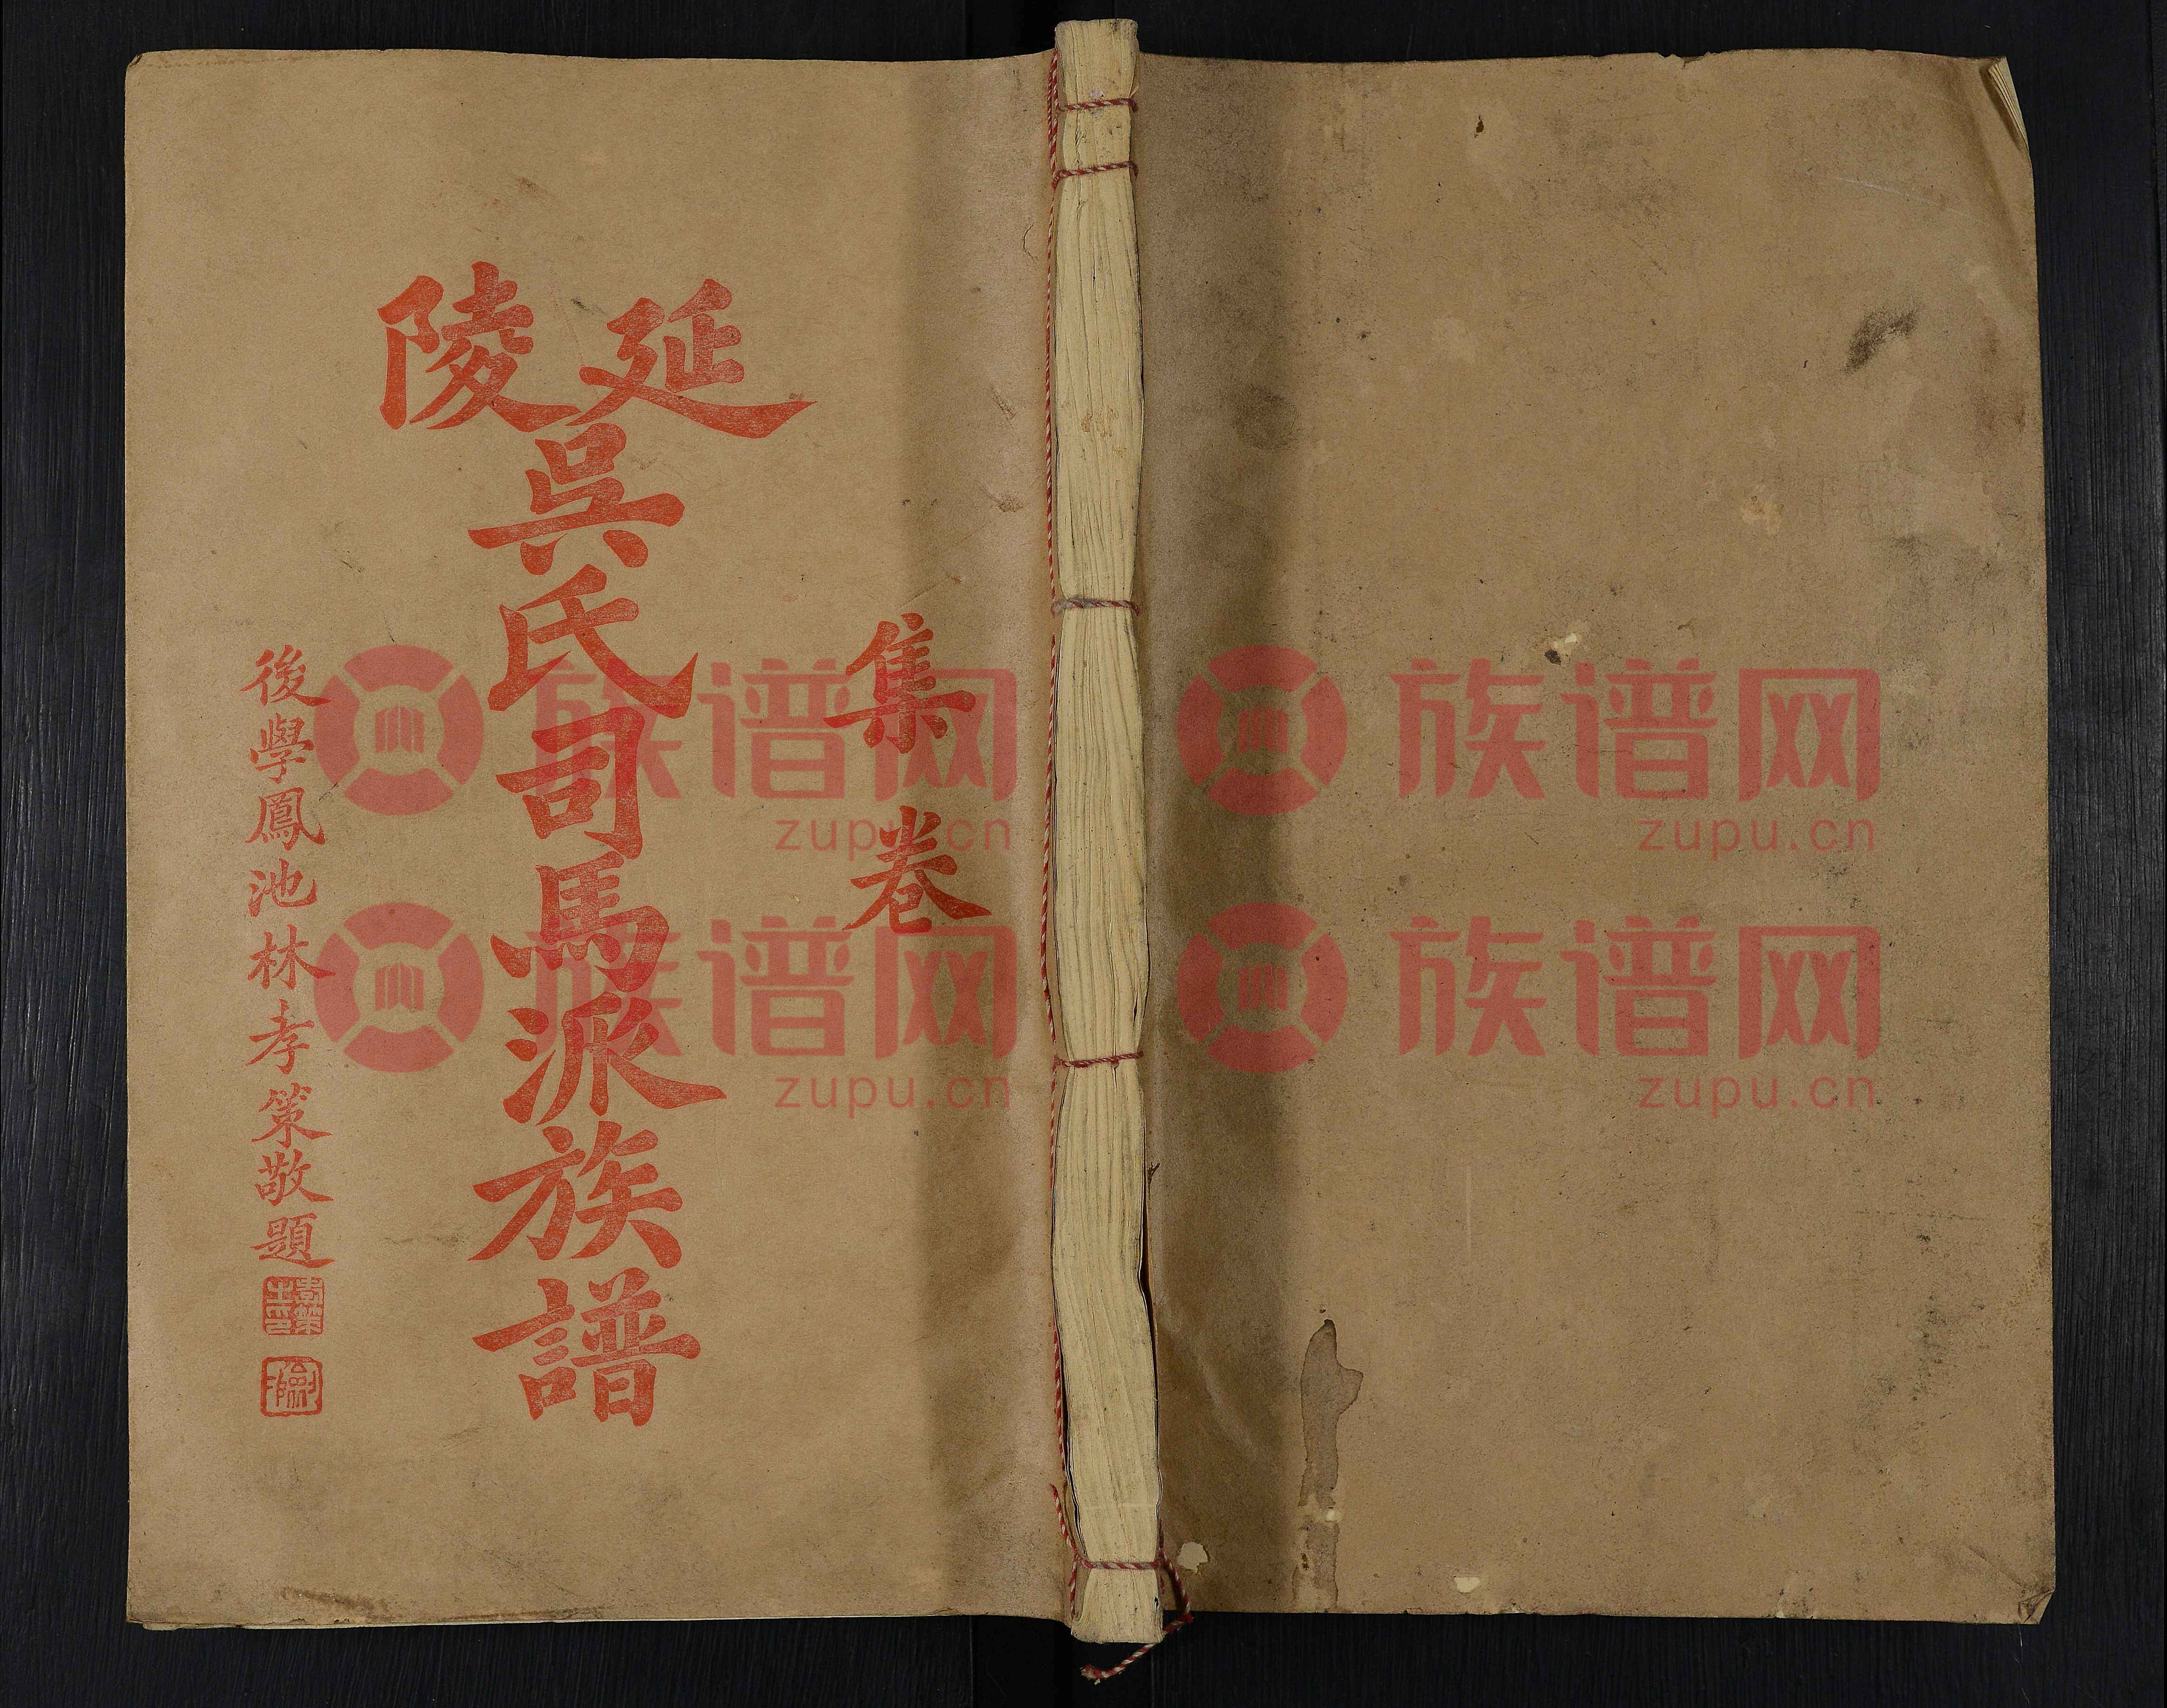 集 卷
延陵
吳氏司馬派族譜
後學鳳池林孝策敬題
族谱网
zupu.cn
族谱网
zupu.cn
族谱网
zupu.cn
族谱网
zupu.cn